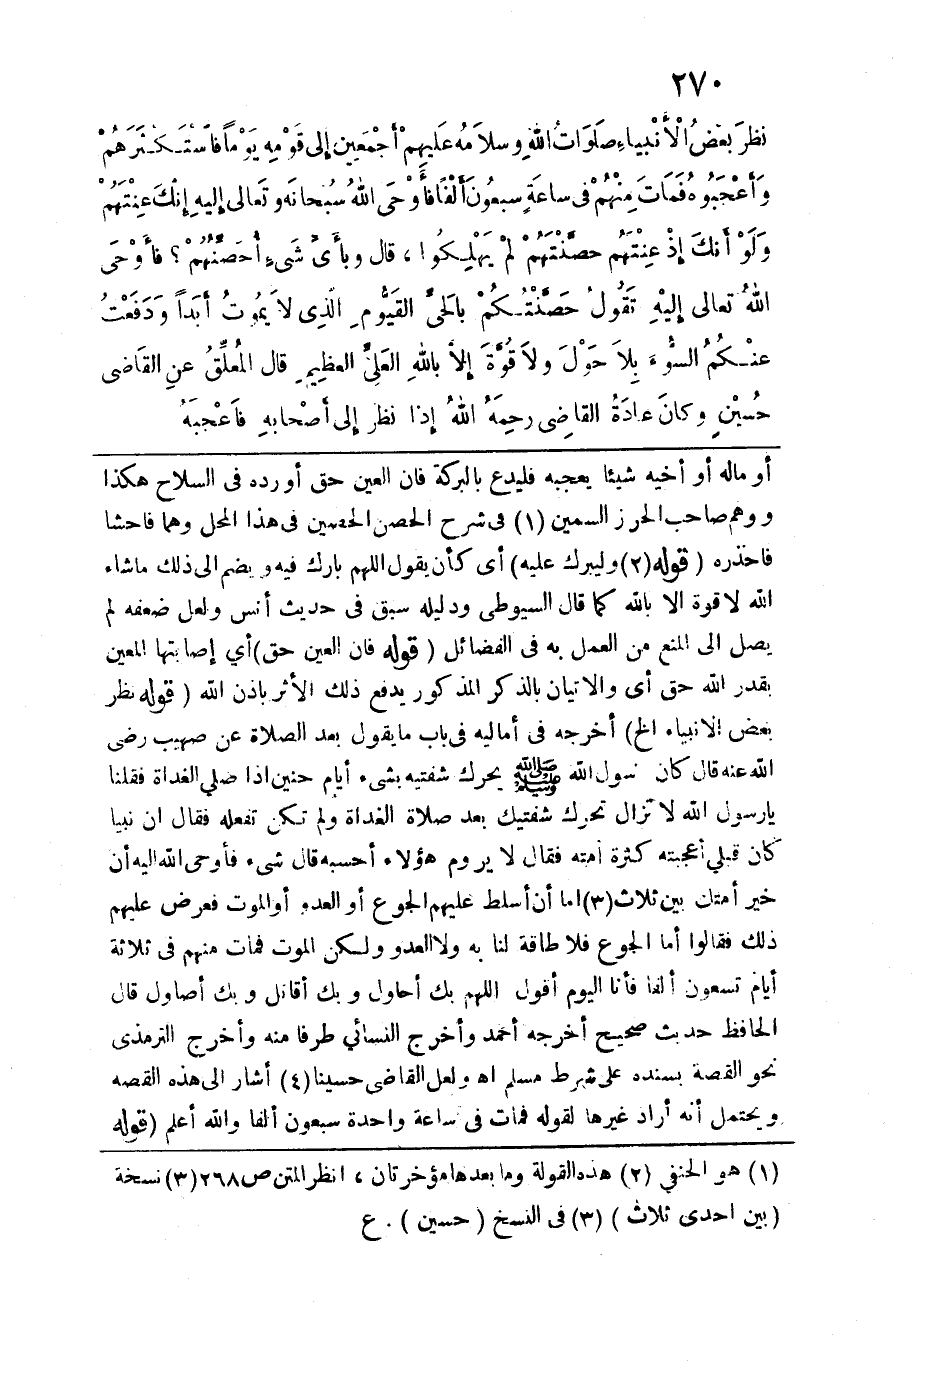 ٢٧٠
نظرَ بَعْضُ الْأَنْبِياءِ صَلَوَاتُ اللهِ وسلامُه عَليهِمْ أَجْمَعِين إلى قَوْمِهِ يَوْماً فاسْتَكْثَرَهُمْ
وَأَعْجَبُوهُ فَمَاتَ مِنْهُمْ فى ساعةٍ سبعُونَ أَلْفاً فأَوْحَى اللهُ سُبْحانَه و تَعالى إليهِ إنَّكَ عِنْتَهُمْ
وَلَوْ أَنكَ إذْ عِنْتَهُم حصَّنْتَهُمْ لمْ يَهْلِكُوا ، قال و بأَىِّ شَىءٍ أُحَصِّنُهُمْ ؟ فأَوْحَى
اللهُ تعالى إليْهِ تَقُولُ حَصَّنْتُكُمْ بالحَىِّ القَيُّومِ الَّذِى لاَ يَمُوتُ أَبَداً وَدَفَعْتُ
عنْكُمُ السُّوءَ بِلاَ حَوْلَ ولاَ قُوَّةَ إلاَّ باللهِ العَلِىِّ العظِيمِ قال المُعلِّقُ عنِ القَاضى
حُسَيْنٍ وكانَ عادَةُ القاضِى رحِمَهُ اللهُ إذا نظَر إلى أصْحابِهِ فَأَعْجبَهُ
أو ماله أو أخيه شيئا يعجبه فليدع بالبركة فان العين حق أورده فى السلاح هكذا
ووهم صاحب الحرز السمين (١) فى شرح الحصن الحصين فى هذا المحل وهما فاحشا
فاحذره ( قوله (٢) وليبرك عليه) أى كأن يقول اللهم بارك فيه و يضم الى ذلك ماشاء
الله لا قوة الا بالله كما قال السيوطى ودليله سبق فى حديث أنس ولعل ضعفه لم
يصل الى المنع من العمل به فى الفضائل ( قوله فان العين حق) أي إصابتها المعين
بقدر الله حق أى والاتيان بالذكر المذكور يدفع ذلك الأثر باذن الله ( قوله نظر
بعض الانبياء الخ) أخرجه فى أماليه فى باب ما يقول بعد الصلاة عن صهيب رضى
الله عنه قال كان رسول الله ﷺ يحرك شفتيه بشىء أيام حنين اذا صلي الغداة فقلنا
يارسول الله لا تزال تحرك شفتيك بعد صلاة الغداة ولم تكن تفعله فقال ان نبيا
كان قبلي أعجبته كثرة أمته فقال لا يروم هؤلاء أحسبه قال شىء فأوحى الله اليه أن
خير أمتك بين ثلاث (٣) اما أن أسلط عليهم الجوع أو العدو أو الموت فعرض عليهم
ذلك فقالوا أما الجوع فلا طاقة لنا به ولا العدو ولكن الموت فمات منهم فى ثلاثة
أيام تسعون ألفا فأنا اليوم أقول اللهم بك أحاول و بك أقاتل و بك أصاول قال
الحافظ حديث صحيح أخرجه أحمد وأخرج النسائي طرفا منه وأخرج الترمذى
نحو القصة بسنده على شرط مسلم اه ولعل القاضى حسينا (٤) أشار الى هذه القصه
و يحتمل أنه أراد غيرها لقوله فمات فى ساعة واحدة سبعون ألفا والله أعلم (قوله
(١) هو الحنفي (٢) هذه القولة وما بعدها مؤخرتان ، انظر المتن ص ٢٦٨ (٣) نسخة
( بين احدى ثلاث ) (٣) فى النسخ ( حسين ) . ع